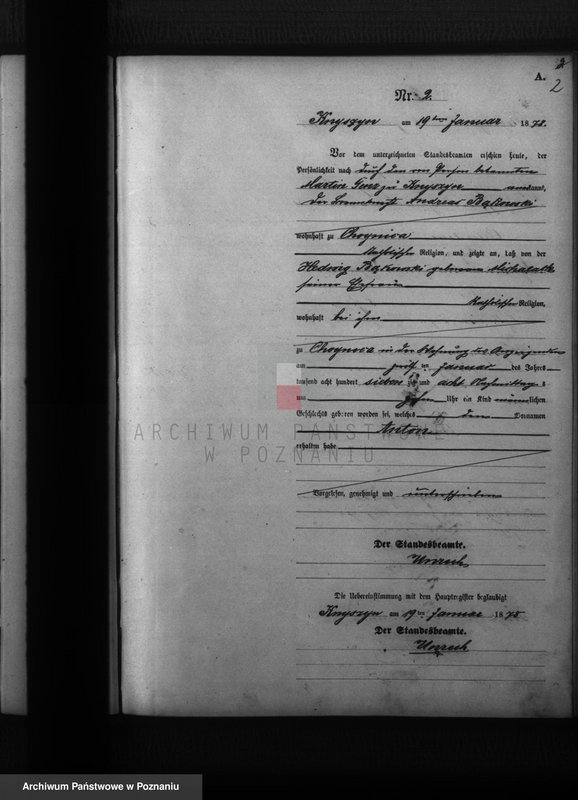 2
2
A.
Nr. 2.
am 19ten Januar 1878.
Vor dem unterzeichneten Standesbeamten erschien heute, der
Persönlichkeit nach durch den von Person bekannten
Martin zu anerkannt,
Der Andreas Bąkowski
wohnhaft zu Choynica
katholischer Religion, und zeigte an, daß von der
Hedwig Bąkowski geborene
seiner Ehefrau
katholischer Religion,
wohnhaft bei ihm
zu Choynica in der Wohnung des Anzeigenden
am Januar des Jahres
tausend acht hundert sieben zig und acht Nachmittags
um Uhr ein Kind männlichen
Geschlechts geboren worden sei, welches den Vornamen
Anton
erhalten habe
Vorgelesen, genehmigt und unterschrieben
Der Standesbeamte.
Die Uebereinstimmung mit dem Hauptregister beglaubigt
am 19ten Januar 1878
Der Standesbeamte.
ARCHIWUM PAŃSTWOWE
W POZNANIU
Archiwum Państwowe w Poznaniu